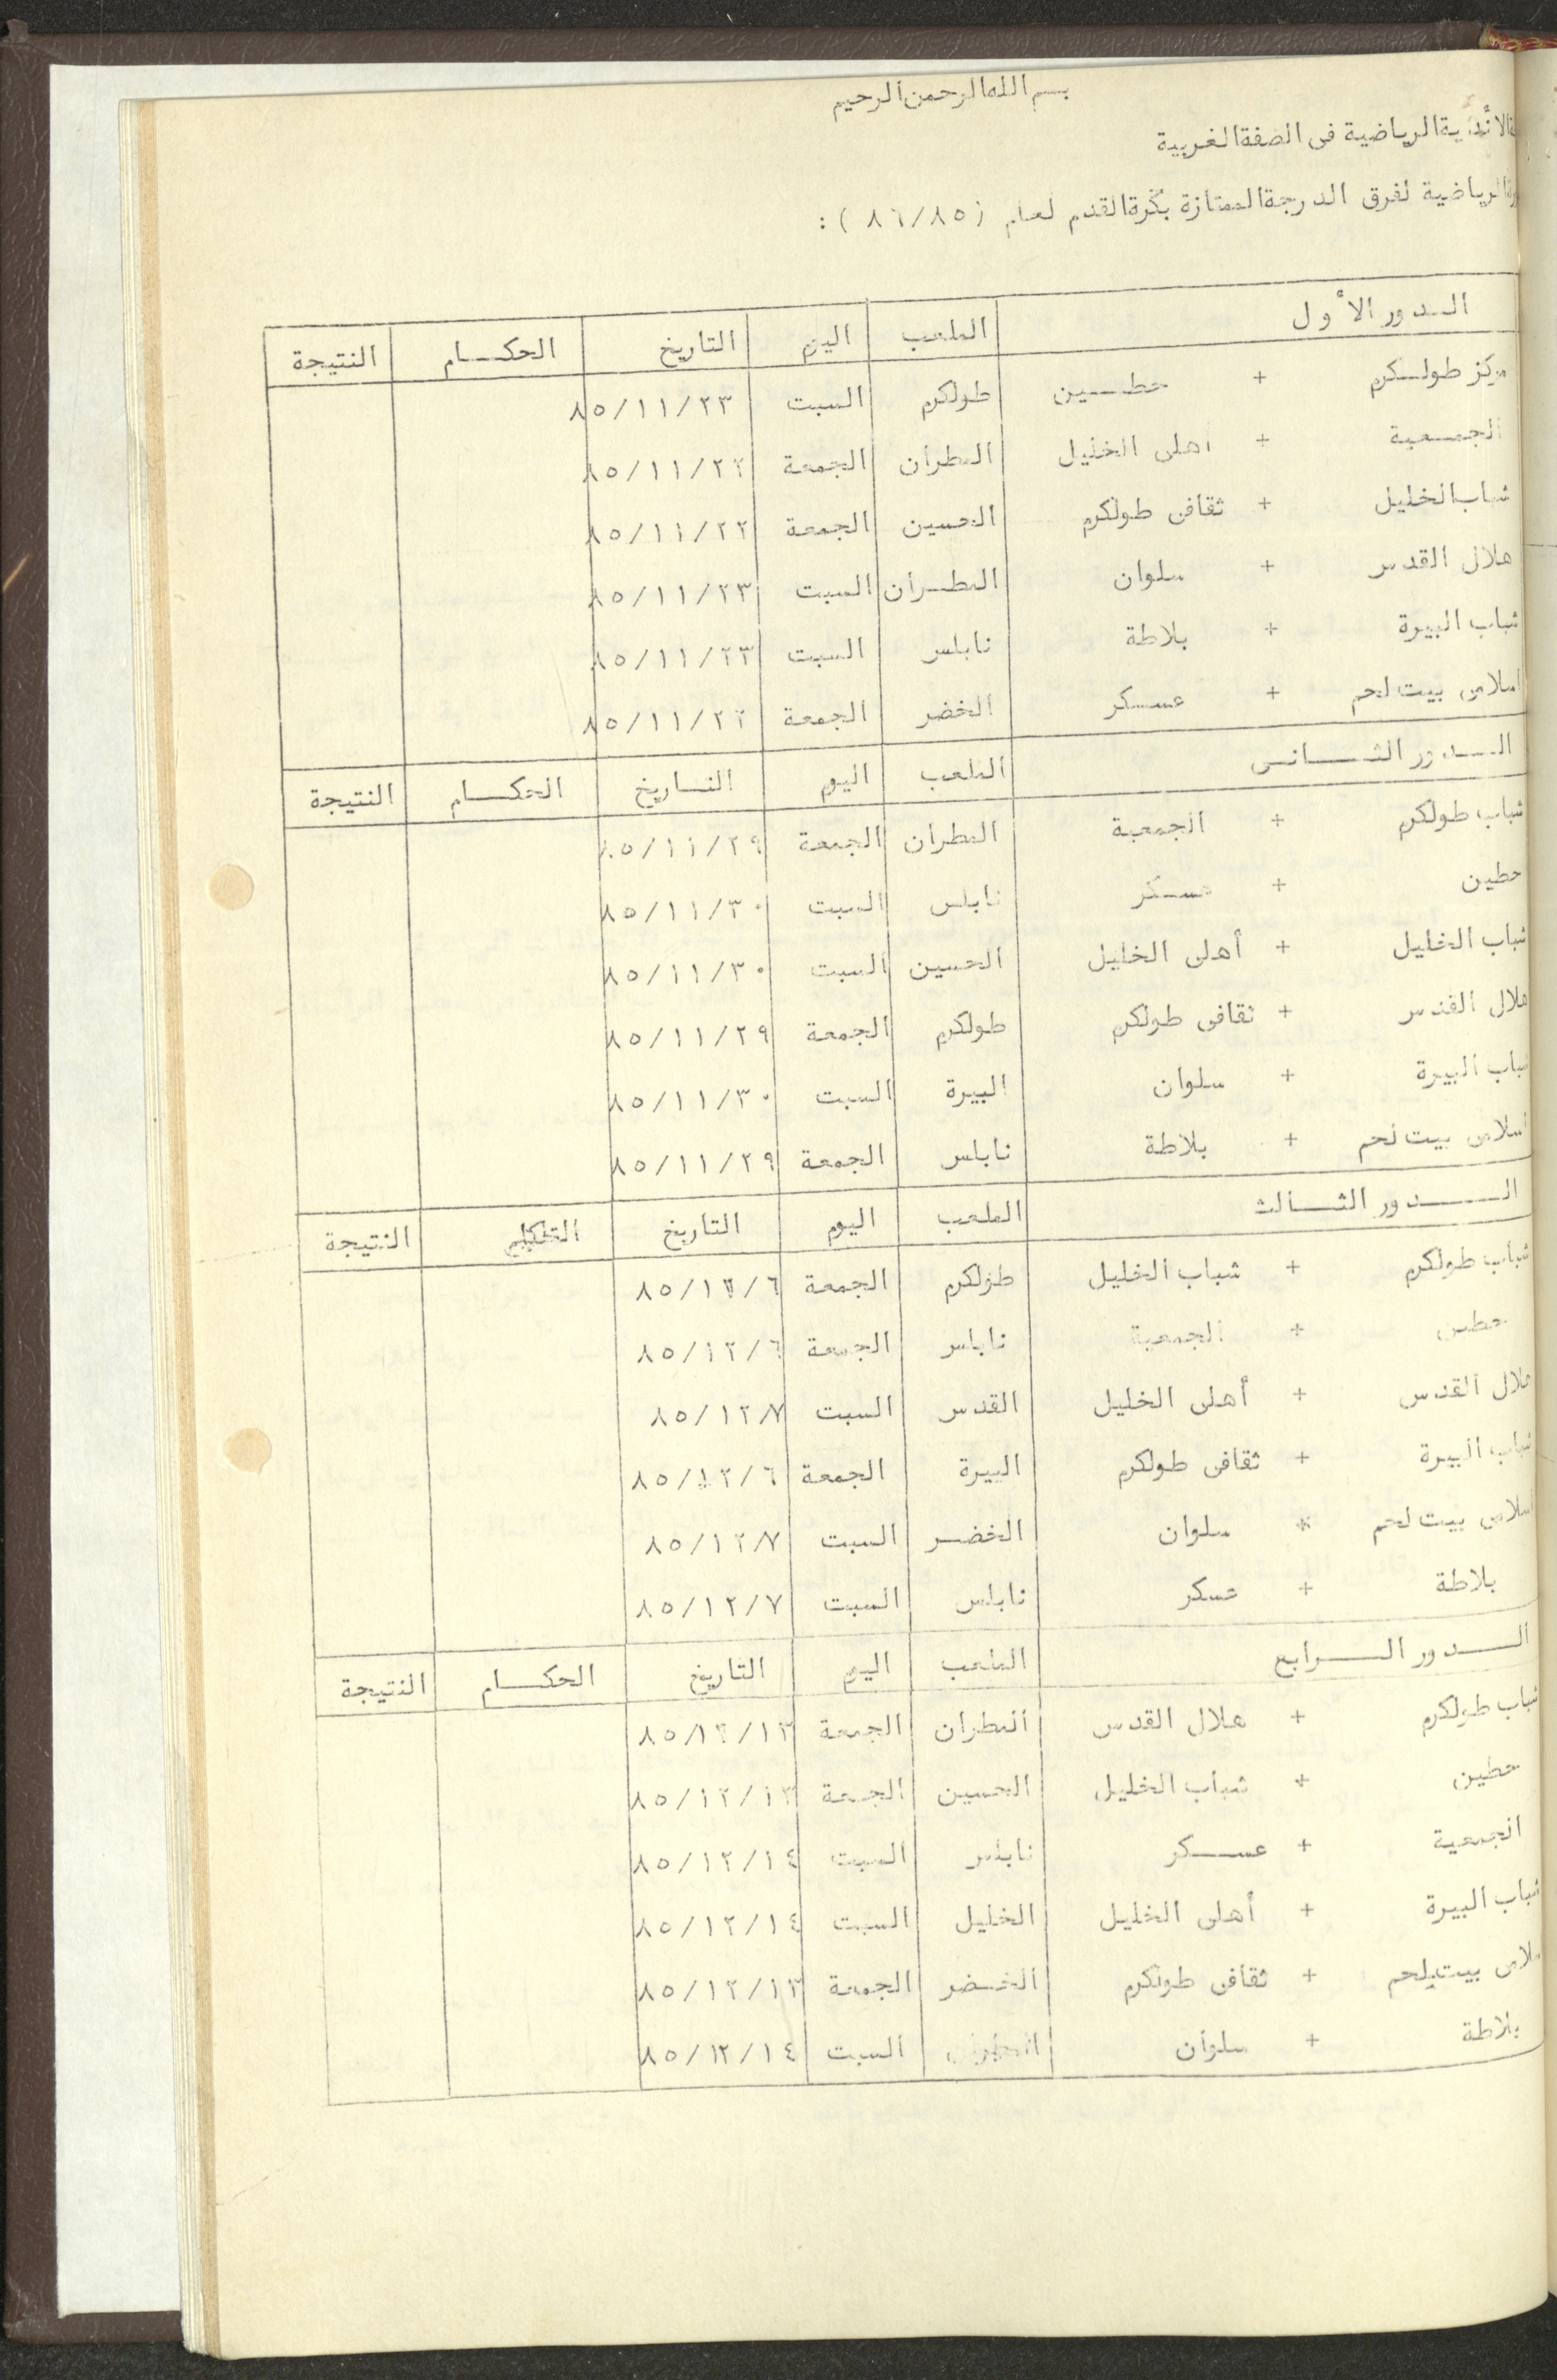 بسم الله الرحمن الرحيم
الأندية الرياضية فى الضفة الغربية
الرياضية لفرق الدرجة الممتازة بكرة القدم لعام (٨٦/٨٥) :
الـدور الأول الملعب اليوم التاريخ الحكـــام النتيجة
مركز طولـكرم + حطــين طولكرم السبت ٨٥/١١/٢٣
الجمـعية + اهلى الخليل المطران الجمعة ٨٥/١١/٢٢
شباب الخليل + ثقافى طولكرم الحسين الجمعة ٨٥/١١/٢٢
هلال القدس + سلوان المطـران السبت ٨٥/١١/٢٣
شباب البيرة + بلاطة نابلس السبت ٨٥/١١/٢٣
اسلامى بيت لحم + عسـكر الخضر الجمعة ٨٥/١١/٢٢
الــدور الثــانى الملعب اليوم التـاريخ الحكـــام النتيجة
شباب طولكرم + الجمعية المطران الجمعة ٨٥/١١/٢٩
حطين + عسـكر نابلس السبت ٨٥/١١/٣٠
شباب الخليل + أهلى الخليل الحسين السبت ٨٥/١١/٣٠
هلال القدس + ثقافى طولكرم طولكرم الجمعة ٨٥/١١/٢٩
شباب البيرة + سلوان البيرة السبت ٨٥/١١/٣٠
اسلامى بيت لحم + بلاطة نابلس الجمعة ٨٥/١١/٢٩
الـــدور الثــالث الملعب اليوم التاريخ النتيجة
شباب طولكرم + شباب الخليل طولكرم الجمعة ٨٥/١٢/٦
حطين + الجمعية نابلس الجمعة ٨٥/١٢/٦
هلال القدس + أهلى الخليل القدس السبت ٨٥/١٢/٧
شباب البيرة + ثقافى طولكرم البيرة الجمعة ٨٥/١٢/٦
اسلامى بيت لحم + سلوان الخضـر السبت ٨٥/١٢/٧
بلاطة + عسكر نابلس السبت ٨٥/١٢/٧
الـــدور الـــرابع الملعب اليوم التاريخ الحكـــام النتيجة
شباب طولكرم + هلال القدس المطران الجمعة ٨٥/١٢/١٣
حطين + شباب الخليل الحسين الجمعة ٨٥/١٢/١٣
الجمعية + عســكر نابلس السبت ٨٥/١٢/١٤
شباب البيرة + أهلى الخليل الخليل السبت ٨٥/١٢/١٤
اسلامى بيت لحم + ثقافى طولكرم الخـضر الجمعة ٨٥/١٢/١٣
بلاطة + سلوان المطران السبت ٨٥/١٢/١٤